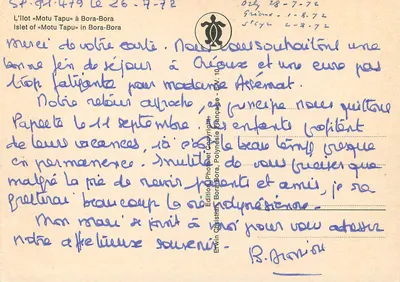 SP. 91.479 le 26-7-72
L'îlot «Motu Tapu» à Bora-Bora
Islet of «Motu Tapu» in Bora-Bora
Orly 28-7-72
2-8-72
merci de votre carte. Nous vous souhaitons une
bonne fin de séjour à Gréoux et une cure pas
trop fatigante pour madame
Notre retour approche, en principe nous quittons
Papeete le 11 septembre. Les enfants profitent
de leurs vacances, ici c'est le beau temps presque
en permanence. Inutile de vous préciser que
malgré la joie de revoir parents et amis, je re
gretterai beaucoup la vie polynésienne.
Mon mari se joint à moi pour vous adresser
notre affectueux souvenir.
Edition Photo et Copyright
Erwin Christian, Bora-Bora, Polynésie Française N° V. 10